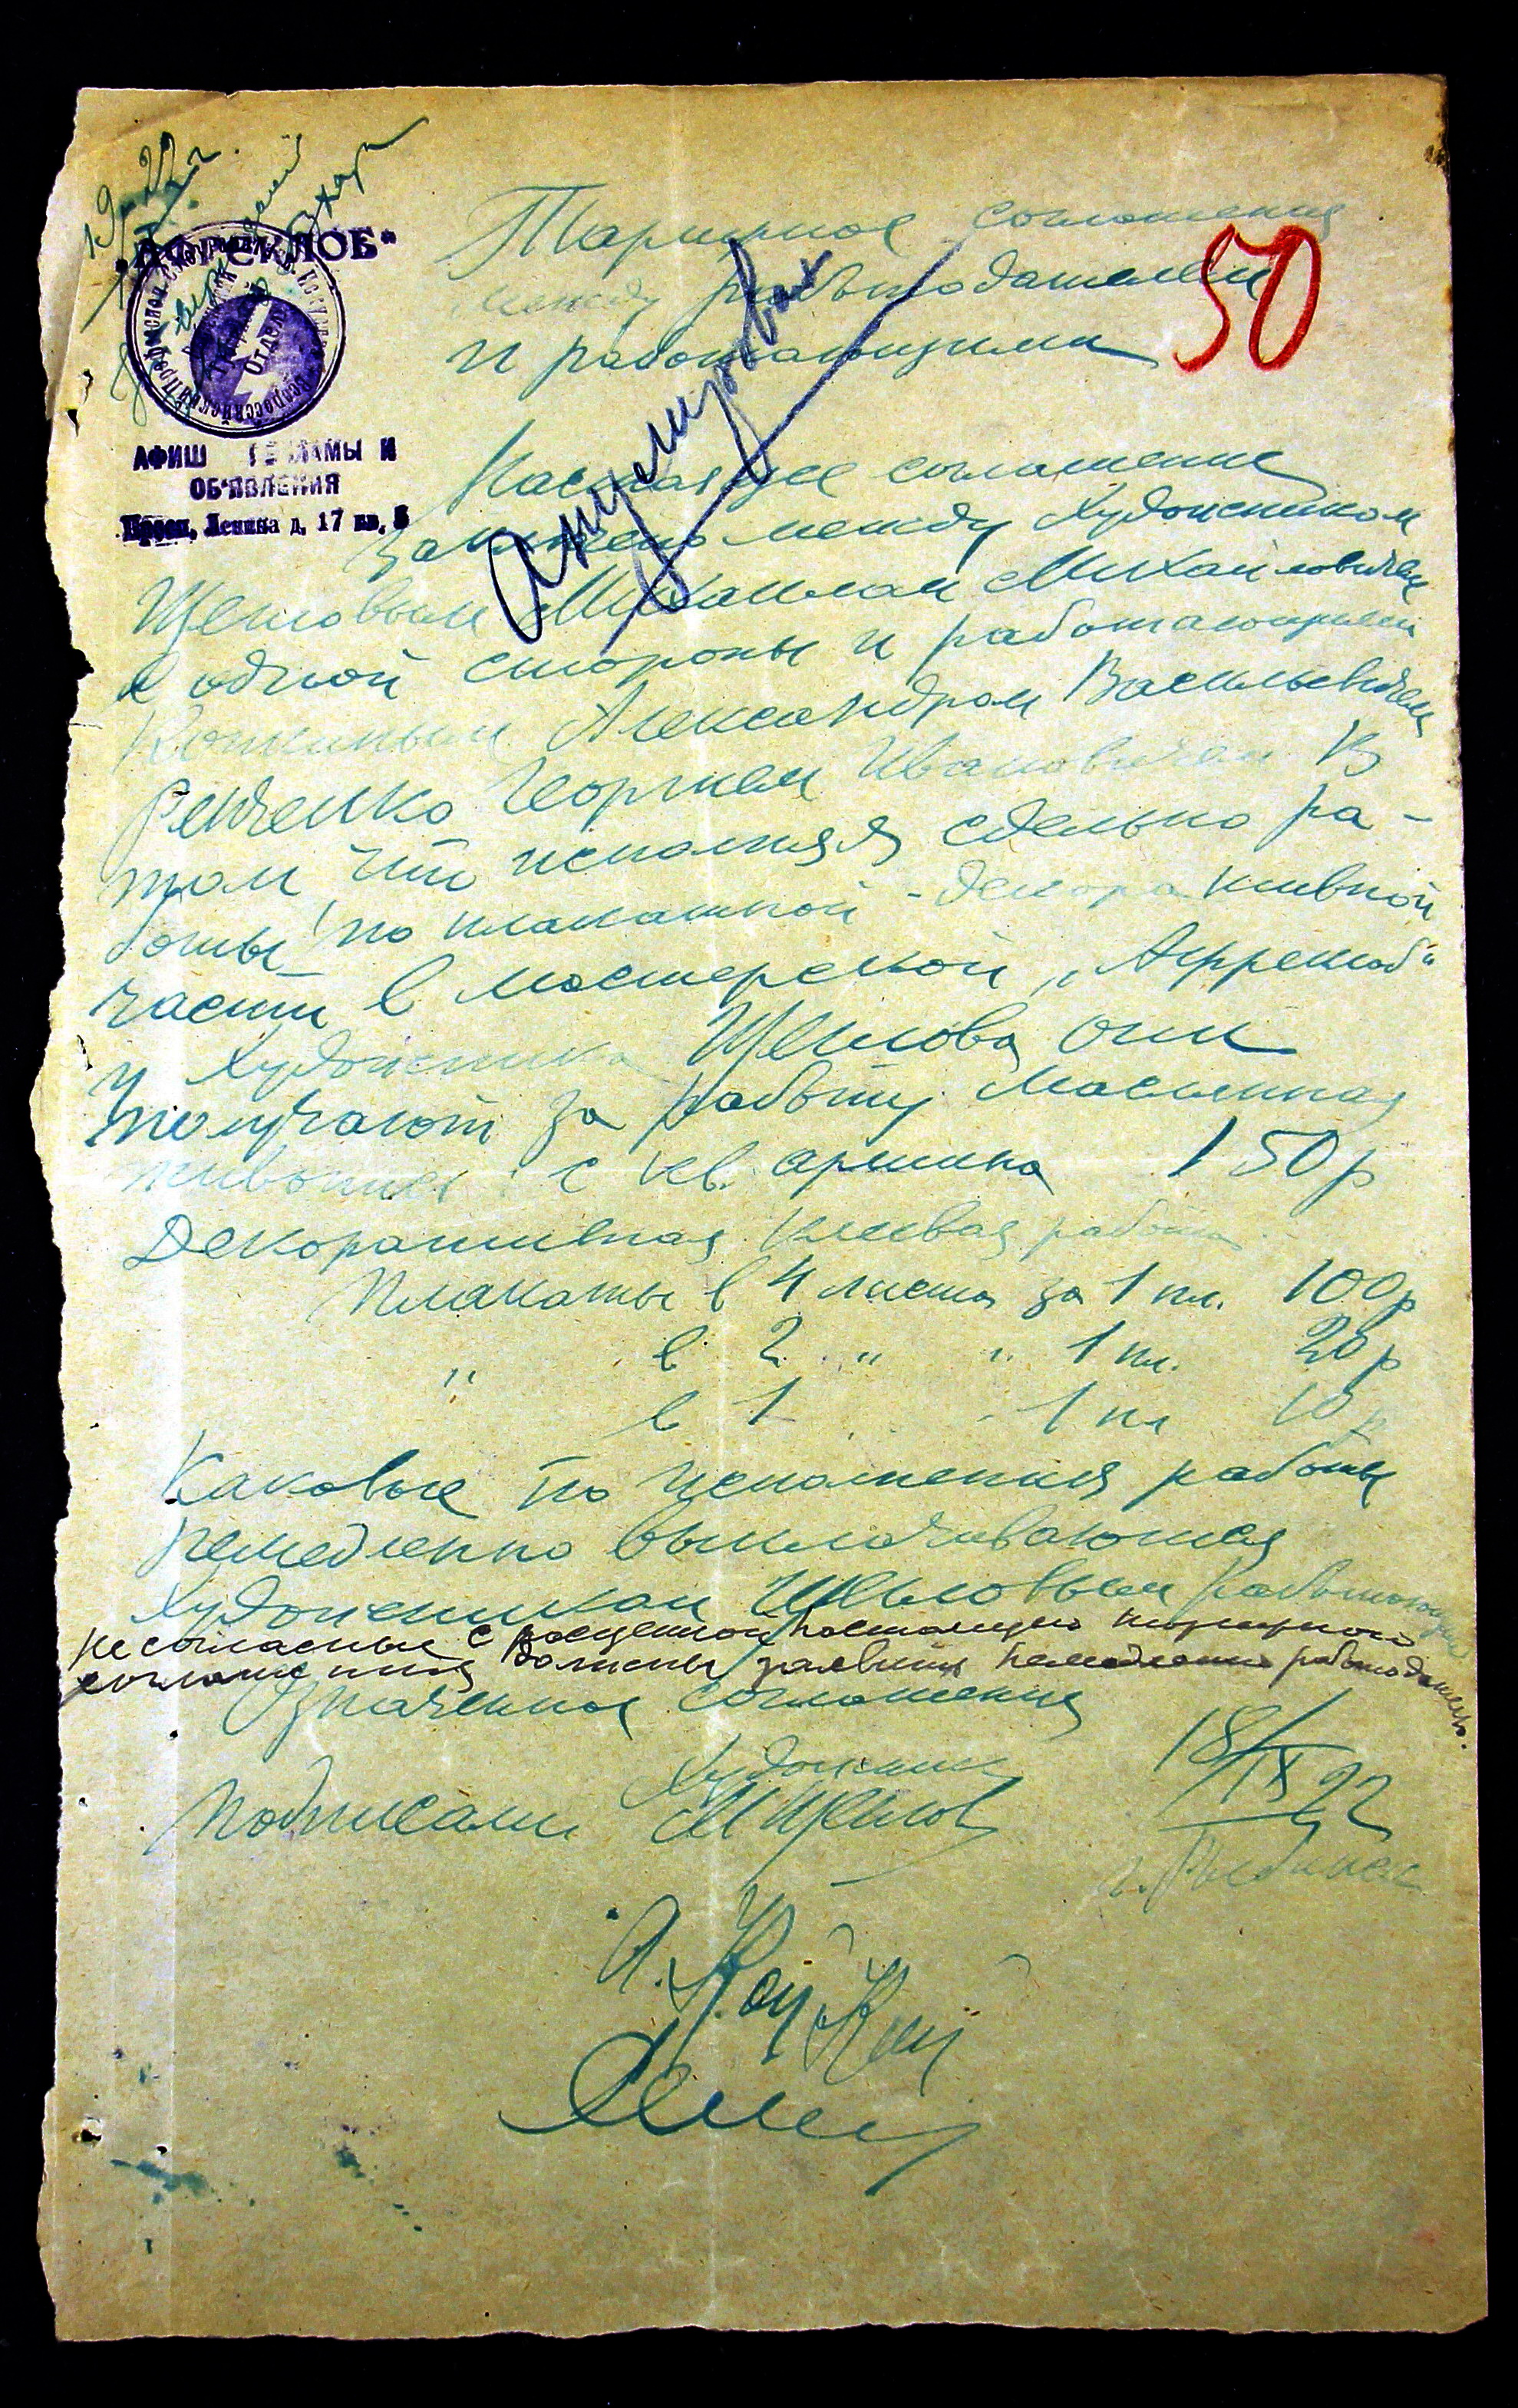 19 22 г.
"АФРЕКЛОБ"
Тарифный Отдел
АФИШ РЕКЛАМЫ И
ОБ'ЯВЛЕНИЯ
Просп. Ленина д. 17 кв. 5
50
Тарифное соглашение
между работодателем
и работающими
Анулирован
Настоящее соглашение
заключено между художником
Щегловым Михаилом Михайловичем
с одной стороны и работающими
Александром Васильевичем
Георгием Ивановичем В
том что исполняя сдельно ра-
боты по плакатной-декоративной
части в мастерской „Афреклоб"
у художника Щеглова они
получают за работу Масленная
живопись с кв. аршина 150 р
Декоративная клеевая работа
Плакаты в 4 листа за 1 пл. 100 р
„ в 2 „ „ 1 пл. 20 р
в 1 1 пл 10 р
Каковые по исполнения работы
немедленно выплачиваются
художником Щегловым работающим
не согласные с расценкой настоящего тарифного
соглашения должны заявить немедленно работодателю.
Означенное соглашения
Художник
подписали М Щеглов
18/IX 22
г. Рыбинск
А.